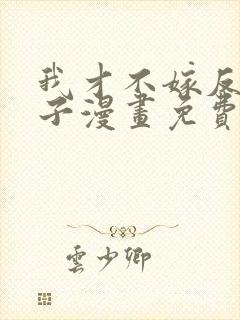 我才不嫁反
子漫畫免費
雲少卿